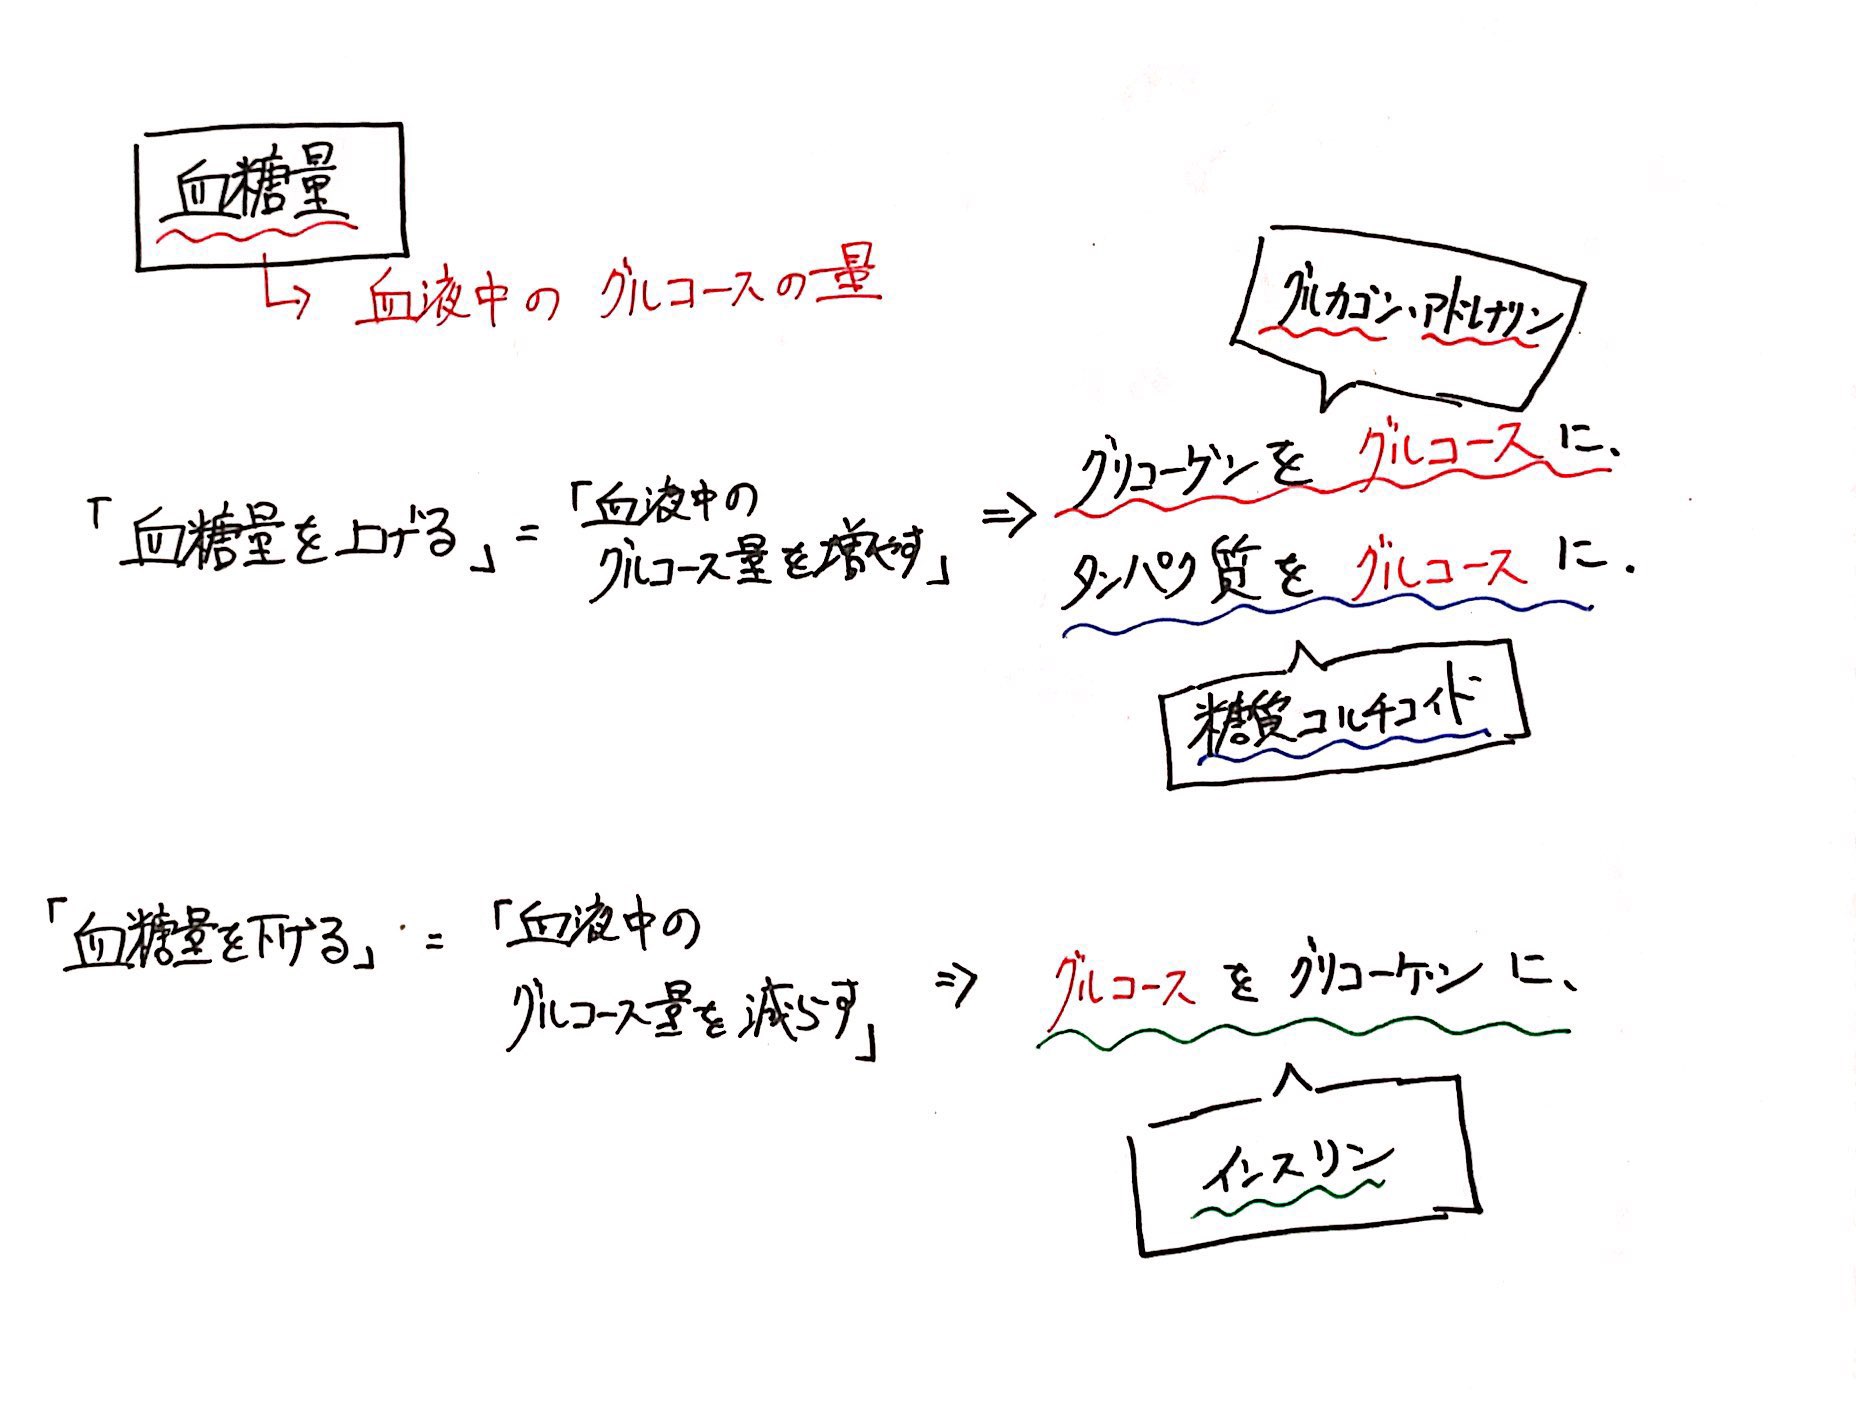 血糖量
↳ 血液中の グルコースの量
グルカゴン、アドレナリン
「血糖量を上げる」=「血液中の
グルコース量を増やす」
⇒ グリコーゲンを グルコースに、
タンパク質を グルコースに.
糖質コルチコイド
「血糖量を下げる」=「血液中の
グルコース量を減らす」
⇒ グルコースを グリコーゲンに、
インスリン